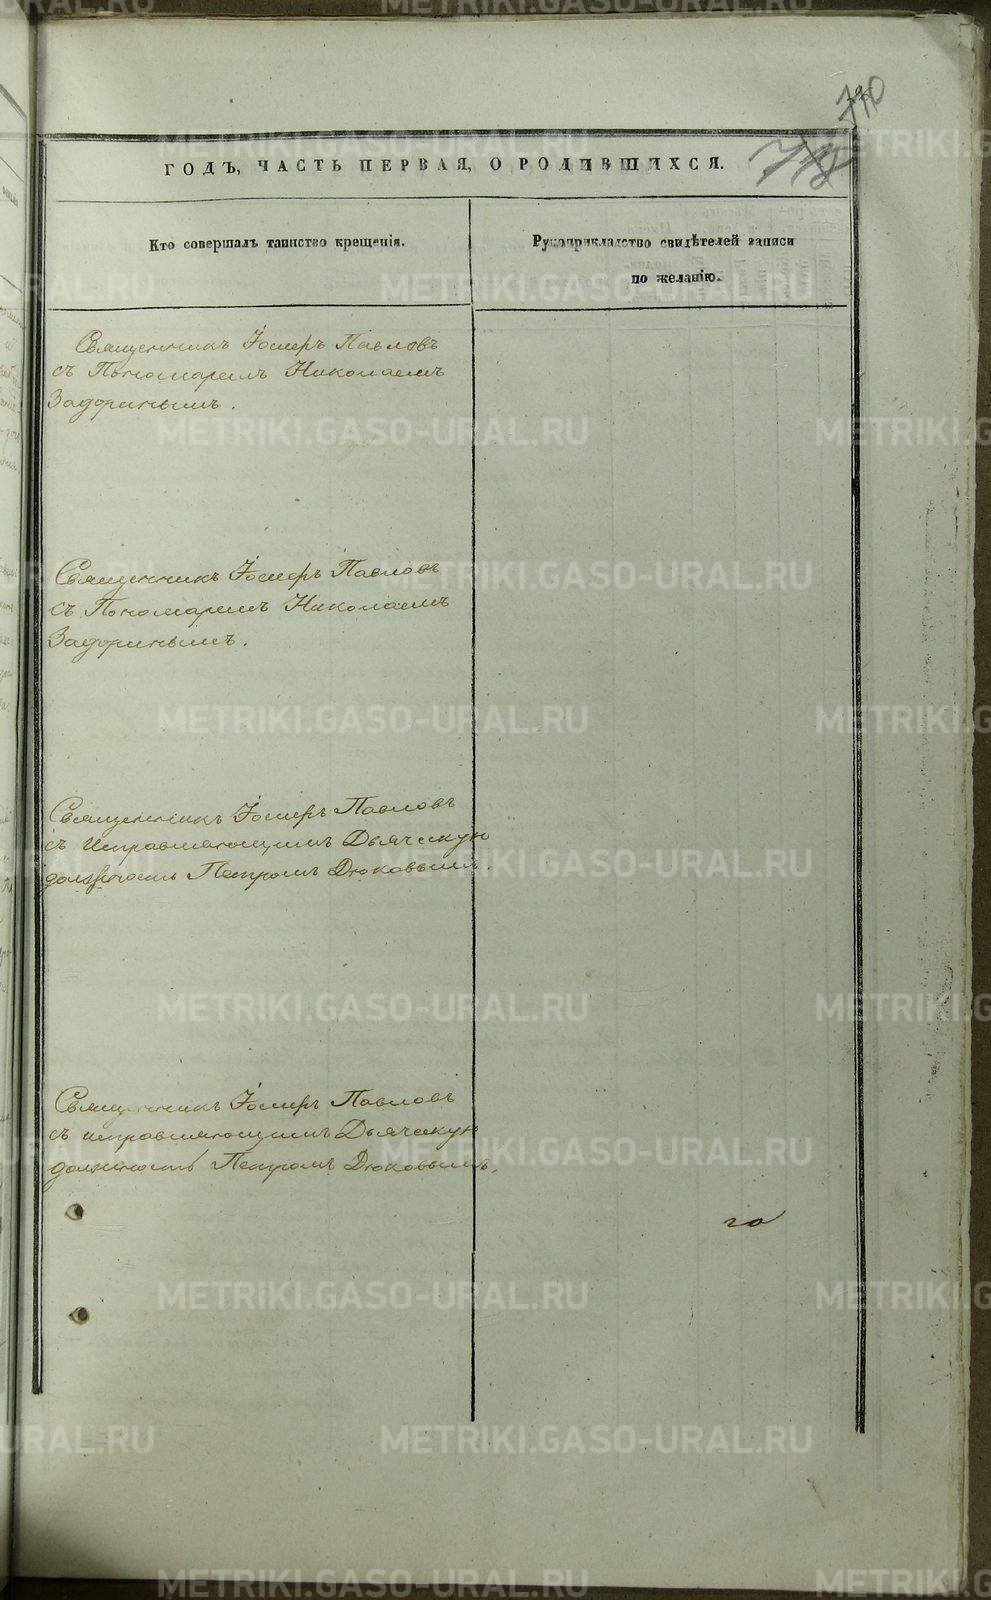 770
ГОДЪ, ЧАСТЬ ПЕРВАЯ, О РОДИВШИХСЯ.
Кто совершалъ таинство крещенія.
Рукоприкладство свидѣтелей записи
по желанію.
Священникъ Іосифъ Павловъ
съ Пономаремъ Николаемъ
Задоринымъ.
Священникъ Іосифъ Павловъ
съ Пономаремъ Николаемъ
Задоринымъ.
Священникъ Іосифъ Павловъ
съ исправляющимъ Дьяческую
должность Петромъ Дюковымъ.
Священникъ Іосифъ Павловъ
съ исправляющимъ Дьяческую
должность Петромъ Дюковымъ.
го
METRIKI.GASO-URAL.RU